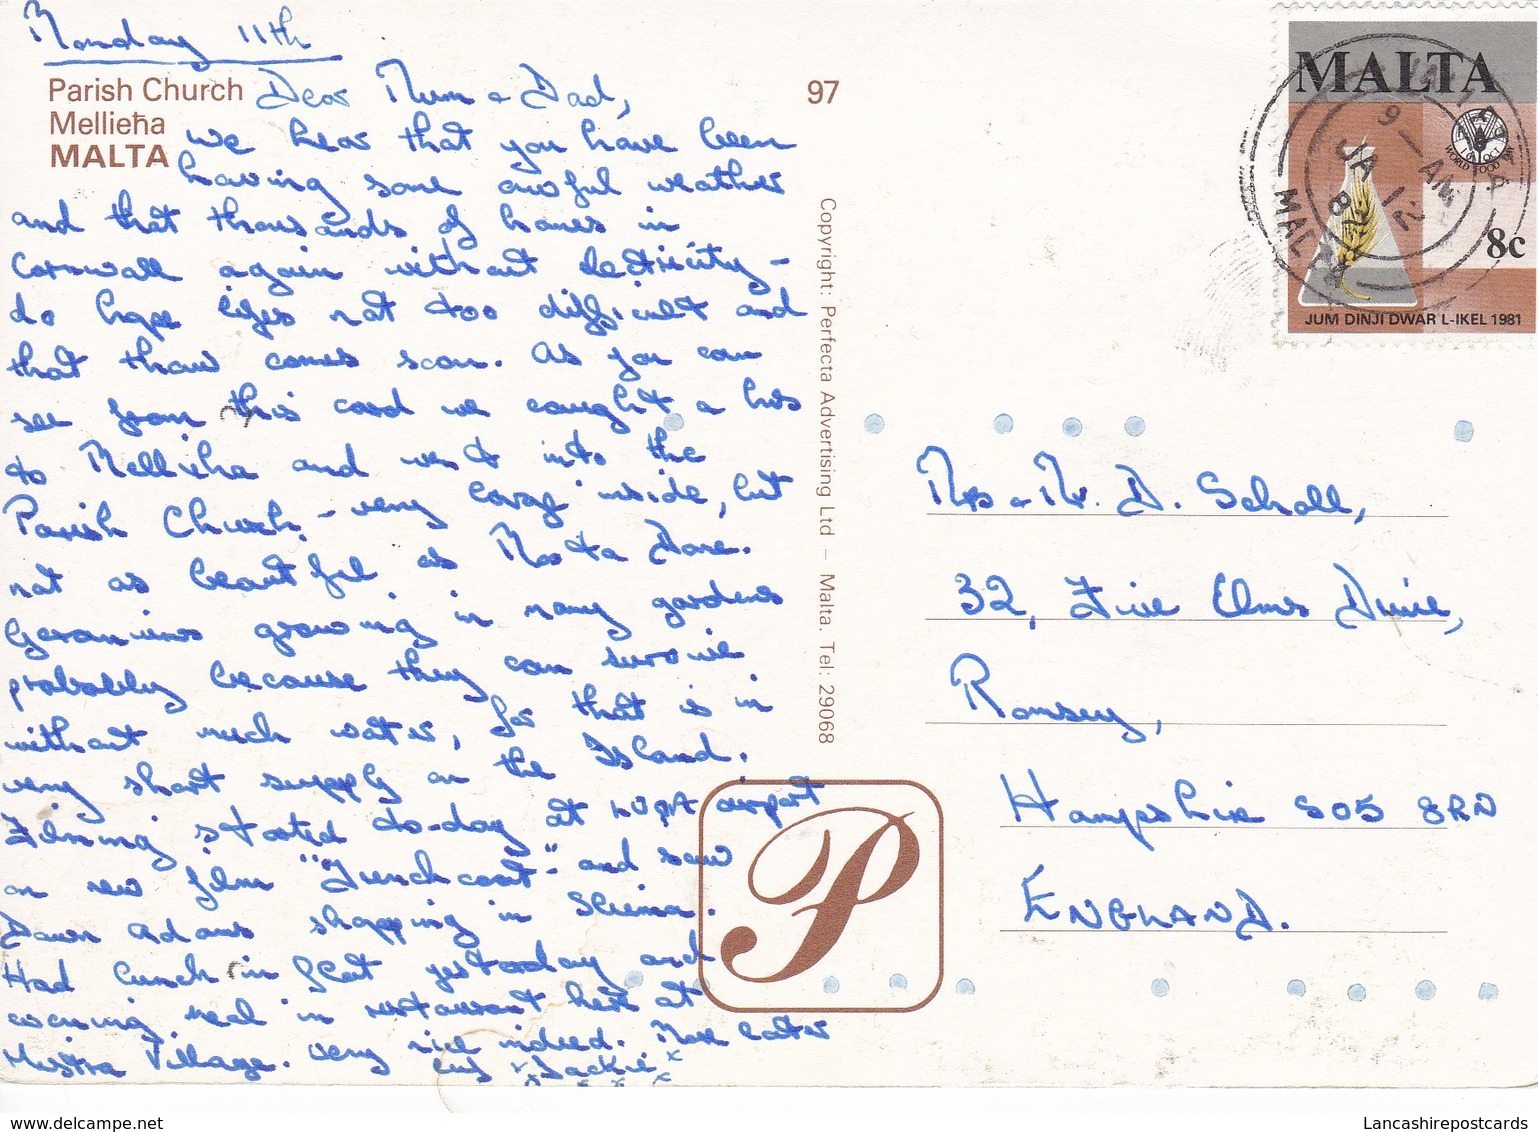 Monday 11th
Parish Church
Mellieħa
MALTA
Dear Mum & Dad,
We hear that you have been
having some awful weather
and that thousands of homes in
Cornwall again without electricity -
do hope lifes not too difficult and
that thaw comes soon. As you can
see from this card we caught a bus
to Mellieha and went into the
Parish Church - very lovely inside, but
not as beautiful as Mosta Dome.
Geraniums growing in many gardens
probably because they can survive
without much water, for that is in
very short supply on the Island.
Filming started to-day at LUQA airport
on new film "Trenchcoat" and saw
Dawn Adams shopping in Sliema.
Had lunch in flat yesterday and
evening meal in restaurant here at
Mistra Village. Very nice indeed. More later
luv x Jackie x
x x x x
97
Copyright: Perfecta Advertising Ltd – Malta. Tel: 29068
P
MALTA
WORLD FOOD
16 OCT
8c
JUM DINJI DWAR L-IKEL 1981
9 - AM
12 JA
82
MALTA
Mrs & Mr. D. Scholl,
32, Five Elms Drive,
Romsey,
Hampshire SO5 8RD
ENGLAND.
www.delcampe.net
Lancashirepostcards